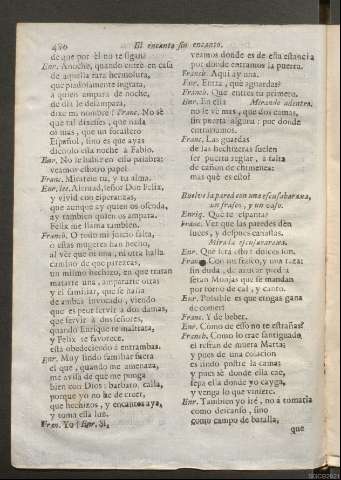 486
El encanto sin encanto.
de que por èl no te sigan?
Enr. Anoche, quando entrè en casa
de aquella rara hermosura,
que piadosamente ingrata,
à quien ampara de noche,
de dia le desampara,
dixe mi nombre? Franc. No sè
que tal dixesses, que nada
oì mas, que un forastero
Español, sino es que ayas
dicholo essa noche à Fabio.
Enr. No le hablè en essa palabra:
veamos essotro papel.
Franc. Miraràs tu, y tu alma.
Enr. lee. Alentad, señor Don Felix,
y vivid con esperanzas,
que aunque ay quien os ofenda,
ay tambien quien os ampara.
Felix me llama tambien.
Franch. O todo mi juicio falta,
ò estas mugeres han hecho,
al vèr que es una, en otra habla
camino de que parezcas,
un mismo hechizo, en que tratan
matarte una, ampararte otras
y el familiar, que se halla
de ambas invocado, viendo
que es peor servir à dos damas,
que servir à dos señores,
quando Enrique te maltrata,
y Felix te favorece,
està obedeciendo à entrambas.
Enr. Muy lindo familiar fuera
el que, quando me amenaza,
me avisa de que me ponga
bien con Dios: barbaro, calla,
porque yo no he de creer,
que hechizos, y encantos aya,
y toma essa luz.
Fran. Yo? Enr. Sì,
veamos donde es de esta estancia
por donde entramos la puerta.
Franch. Aqui ay una.
Enr. Entra, què aguardas?
Franch. Que entres tu primero.
Enr. En ella Mirando adentro.
no se vè mas, que dos camas,
sin puerta alguna: por donde
entraramos.
Franc. Las guardas
de las hechizeras suelen
ser puerta reglar, à falta
de cañon de chimenea:
mas què es esto?
Buelve la pared con una escusabarana,
un frasco, y un vaso.
Enriq. Què te espanta?
Franc. Vèr que las paredes den
luces, y despues canastas.
Mira la escusabarana.
Enr. Què serà esto? dolces son.
Franc. Con un frasco, y una taza:
sin duda, de azucar piedra
seràn Monjas que se mandan
por torno de cal, y canto.
Enr. Possible es que tengas gana
de comer?
Franc. Y de beber.
Enr. Como de esso no te estrañas?
Franch. Como lo trae santiguado
el refran de muera Marta;
y pues de una colacion
es lindo postre la camas
y pues sè donde ella cae,
sepa ella donde yo cayga,
y venga lo que viniere.
Enr. Tambien yo irè, no à tomarla
como descanso, sino
como campo de batalla,
que